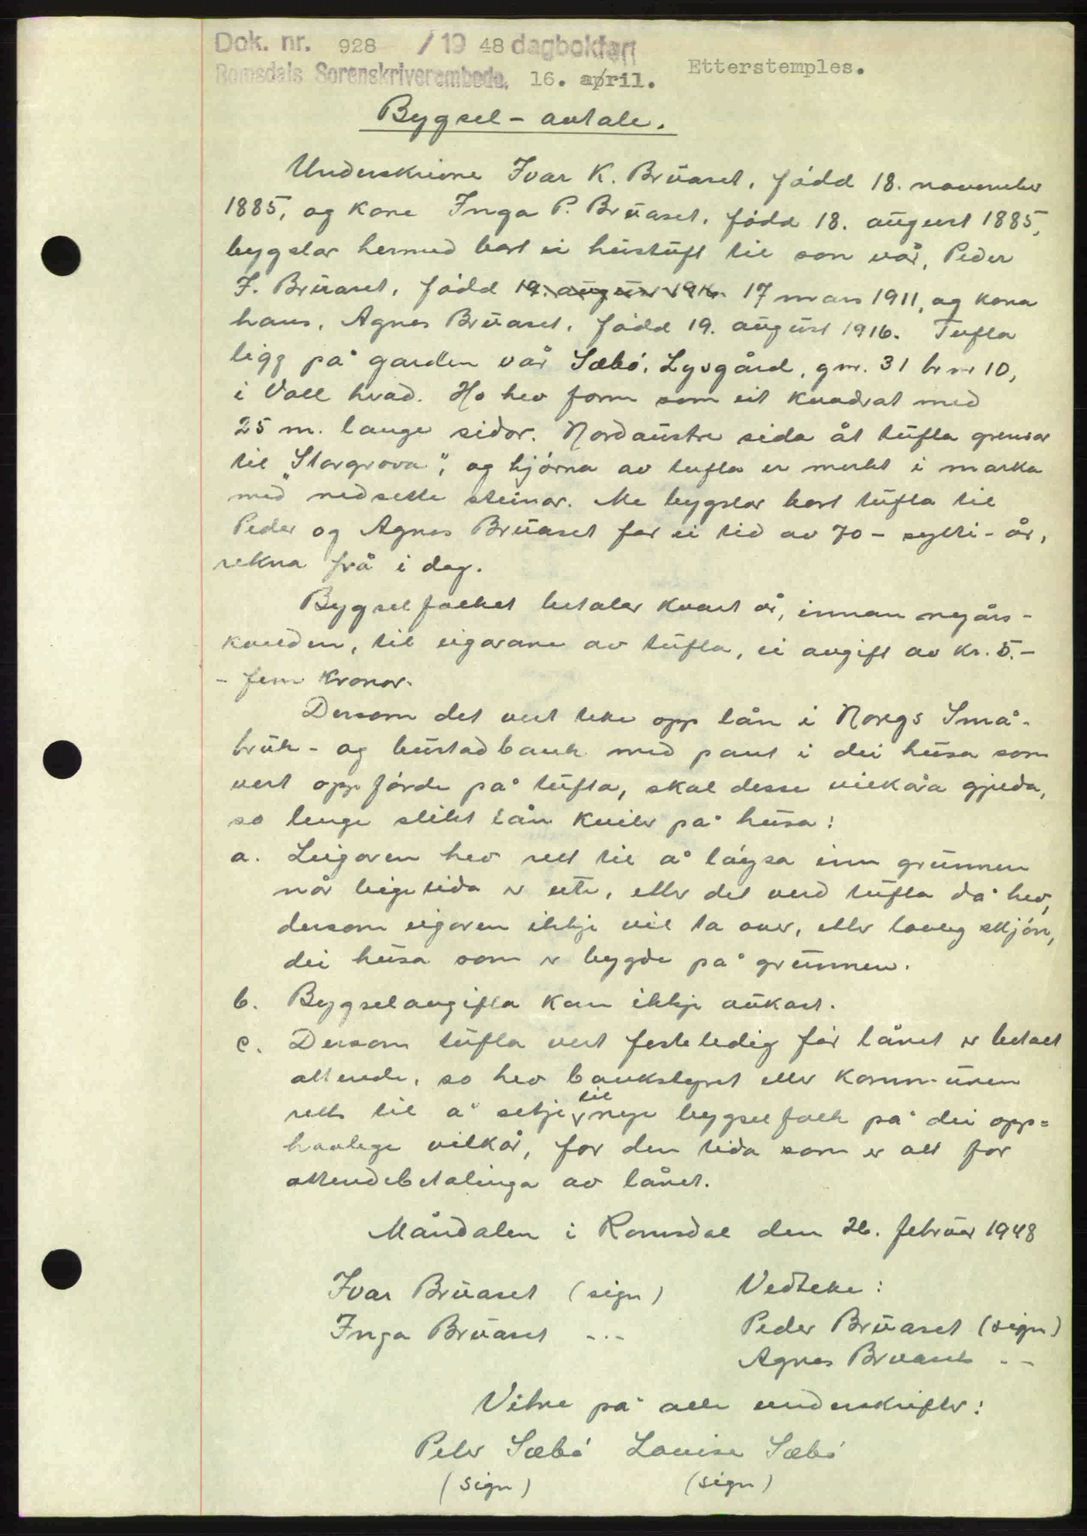 Dok. nr. 928 / 19 48 dagbokført
Romsdals Sorenskriverembede, 16. april. Etterstemples.
Bygsel - avtale.
Underskrivne Ivar K. Brüaset, född 18. november
1885, og kone Inga P. Brüaset, född 18. august 1885,
bygslar hermed bort ei hustuft til son vår, Peder
I. Brüaset, född 19. august 1916. 17 mars 1911, og kona
hans, Agnes Brüaset, född 19. august 1916. Tufta
ligg på garden vår Sæbö, Lysgård, gnr. 31 br nr 10,
i Voll hrad. Ho hev form som eit kvadrat med
25 m. lange sidor. Nordaustre sida åt tufta grensar
til "Storgrova", og hjörna av tufta er merkt i marka
med nedsette steinar. Me bygslar bort tufta til
Peder og Agnes Brüaset for ei tid av 70 - sytti - år,
rekna frå i dag.
Bygselfolket betaler kvart år, innan nyårs-
kvelden, til eigarane av tufta, ei avgift av kr. 5.-
- fem kronor.
Dersom det vert teke opp lån i Noregs Små-
bruk- og bustadbank med pant i dei husa som
vert oppförde på tufta, skal desse vilkåra gjelda,
so lenge slikt lån kviler på husa:
a. Leigaren hev rett til å löysa inn grunnen
når leigetida er ute, eller det verd tufta då hev,
dersom eigaren ikkje vil ta over, etter lovleg skjön,
dei husa som er bygde på grunnen.
b. Bygselavgifta kan ikkje aukast.
c. Dersom tufta vert festeledig för lånet er betalt
attende, so hev bankstyret eller kommunen
rett til å setje til nye bygselfolk på dei opp=
havlege vilkår, for den tida som er att for
attendebetalinga av lånet.
Måndalen i Romsdal den 26. februar 1948
Ivar Brüaset (sign) Vedteke:
Inga Brüaset - " - Peder Brüaset (sign)
Agnes Brüaset - -
Vitne på alle underskrifter:
Peter Sæbö Louise Sæbö
(sign) (sign)